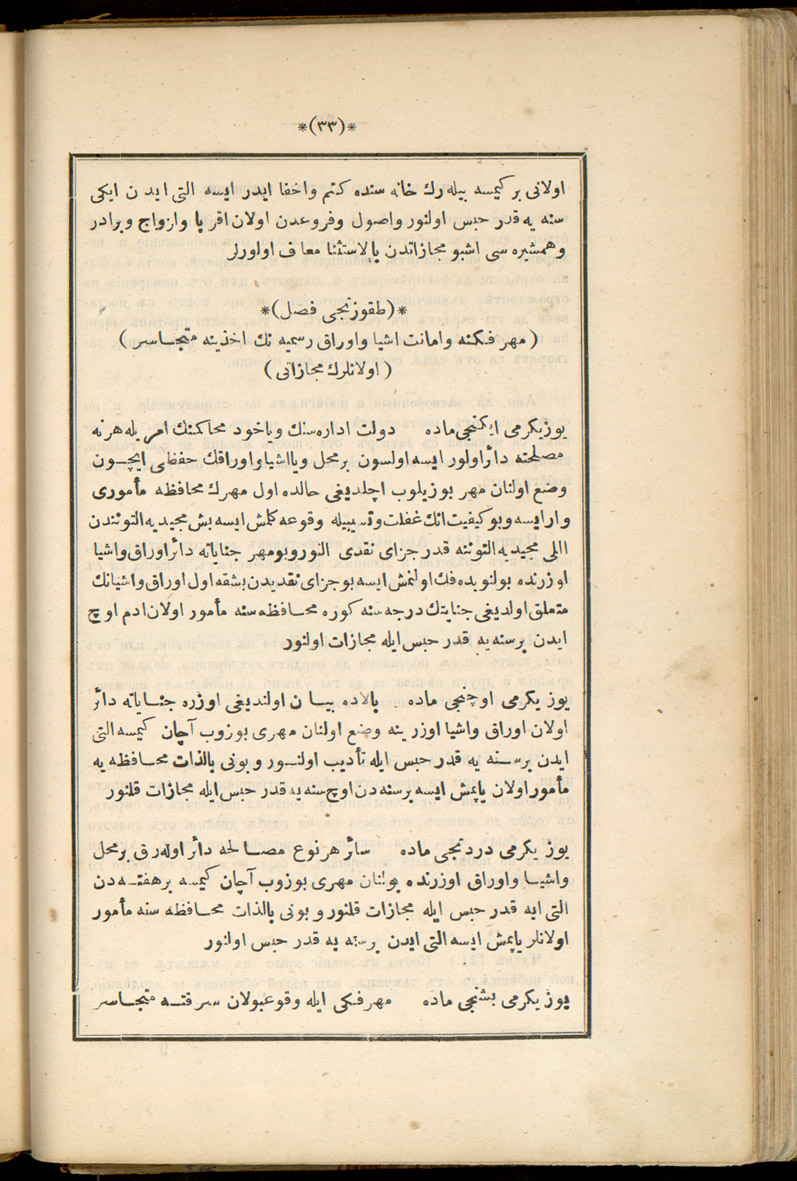 *(٣٣)*
اولانی بر کیمسه بیله‌رك خانه سنده کتم واخفا ایدر ایسه التی ایدن ایکی
سنه یه قدر حبس اولنور واصول وفروعدن اولان اقربا وازواج وبرادر
وهمشیره سی اشبو مجازاتدن بالاستثنا معاف اولورلر
*(طقوزنجی فصل)*
(مهر فکنه وامانت اشیا واوراق رسمیه نك اخذینه متجاسر)
(اولانلرك مجازاتی)
یوز یکرمی ایکنجی ماده دولت اداره سنك ویاخود محاکمك امریله هر نه
مصلحته دائر اولور ایسه اولسون بر محل ویا اشیا واوراقك حفظی ایچون
وضع اولنان مهر بوزیلوب اچلدیغی حالده اول مهرك محافظه مأموری
وار ایسه وبو کیفیت انك غفلت وتسیبیله وقوعه کلمش ایسه بش مجیدیه التوندن
اللی مجیدیه التوننه قدر جزای نقدی النور وبو مهر جنایاته دائر اوراق واشیا
اوزرنده بولنوبده فك اولنمش ایسه بو جزای نقدیدن بشقه اول اوراق واشیانك
متعلق اولدیغی جنایتك درجه سنه کوره محافظه سنه مأمور اولان ادم اوچ
ایدن برسنه یه قدر حبس ایله مجازات اولنور
یوز یکرمی اوچنجی ماده بالاده بیان اولندیغی اوزره جنایاته دائر
اولان اوراق واشیا اوزرینه وضع اولنان مهری بوزوب آچان کیمسه التی
ایدن برسنه یه قدر حبس ایله تأدیب اولنور وبونی بالذات محافظه یه
مأمور اولان یاپمش ایسه برسنه دن اوچ سنه یه قدر حبس ایله مجازات قلنور
یوز یکرمی دردنجی ماده سائر هر نوع مصالحه دائر اوله‌رق بر محل
واشیا واوراق اوزرنده بولنان مهری بوزوب آچان کیمسه بر هفته دن
التی ایه قدر حبس ایله مجازات قلنور وبونی بالذات محافظه سنه مأمور
اولانلر یاپمش ایسه التی ایدن برسنه یه قدر حبس اولنور
یوز یکرمی بشنجی ماده مهر فکی ایله وقوعبولان سرقته متجاسر